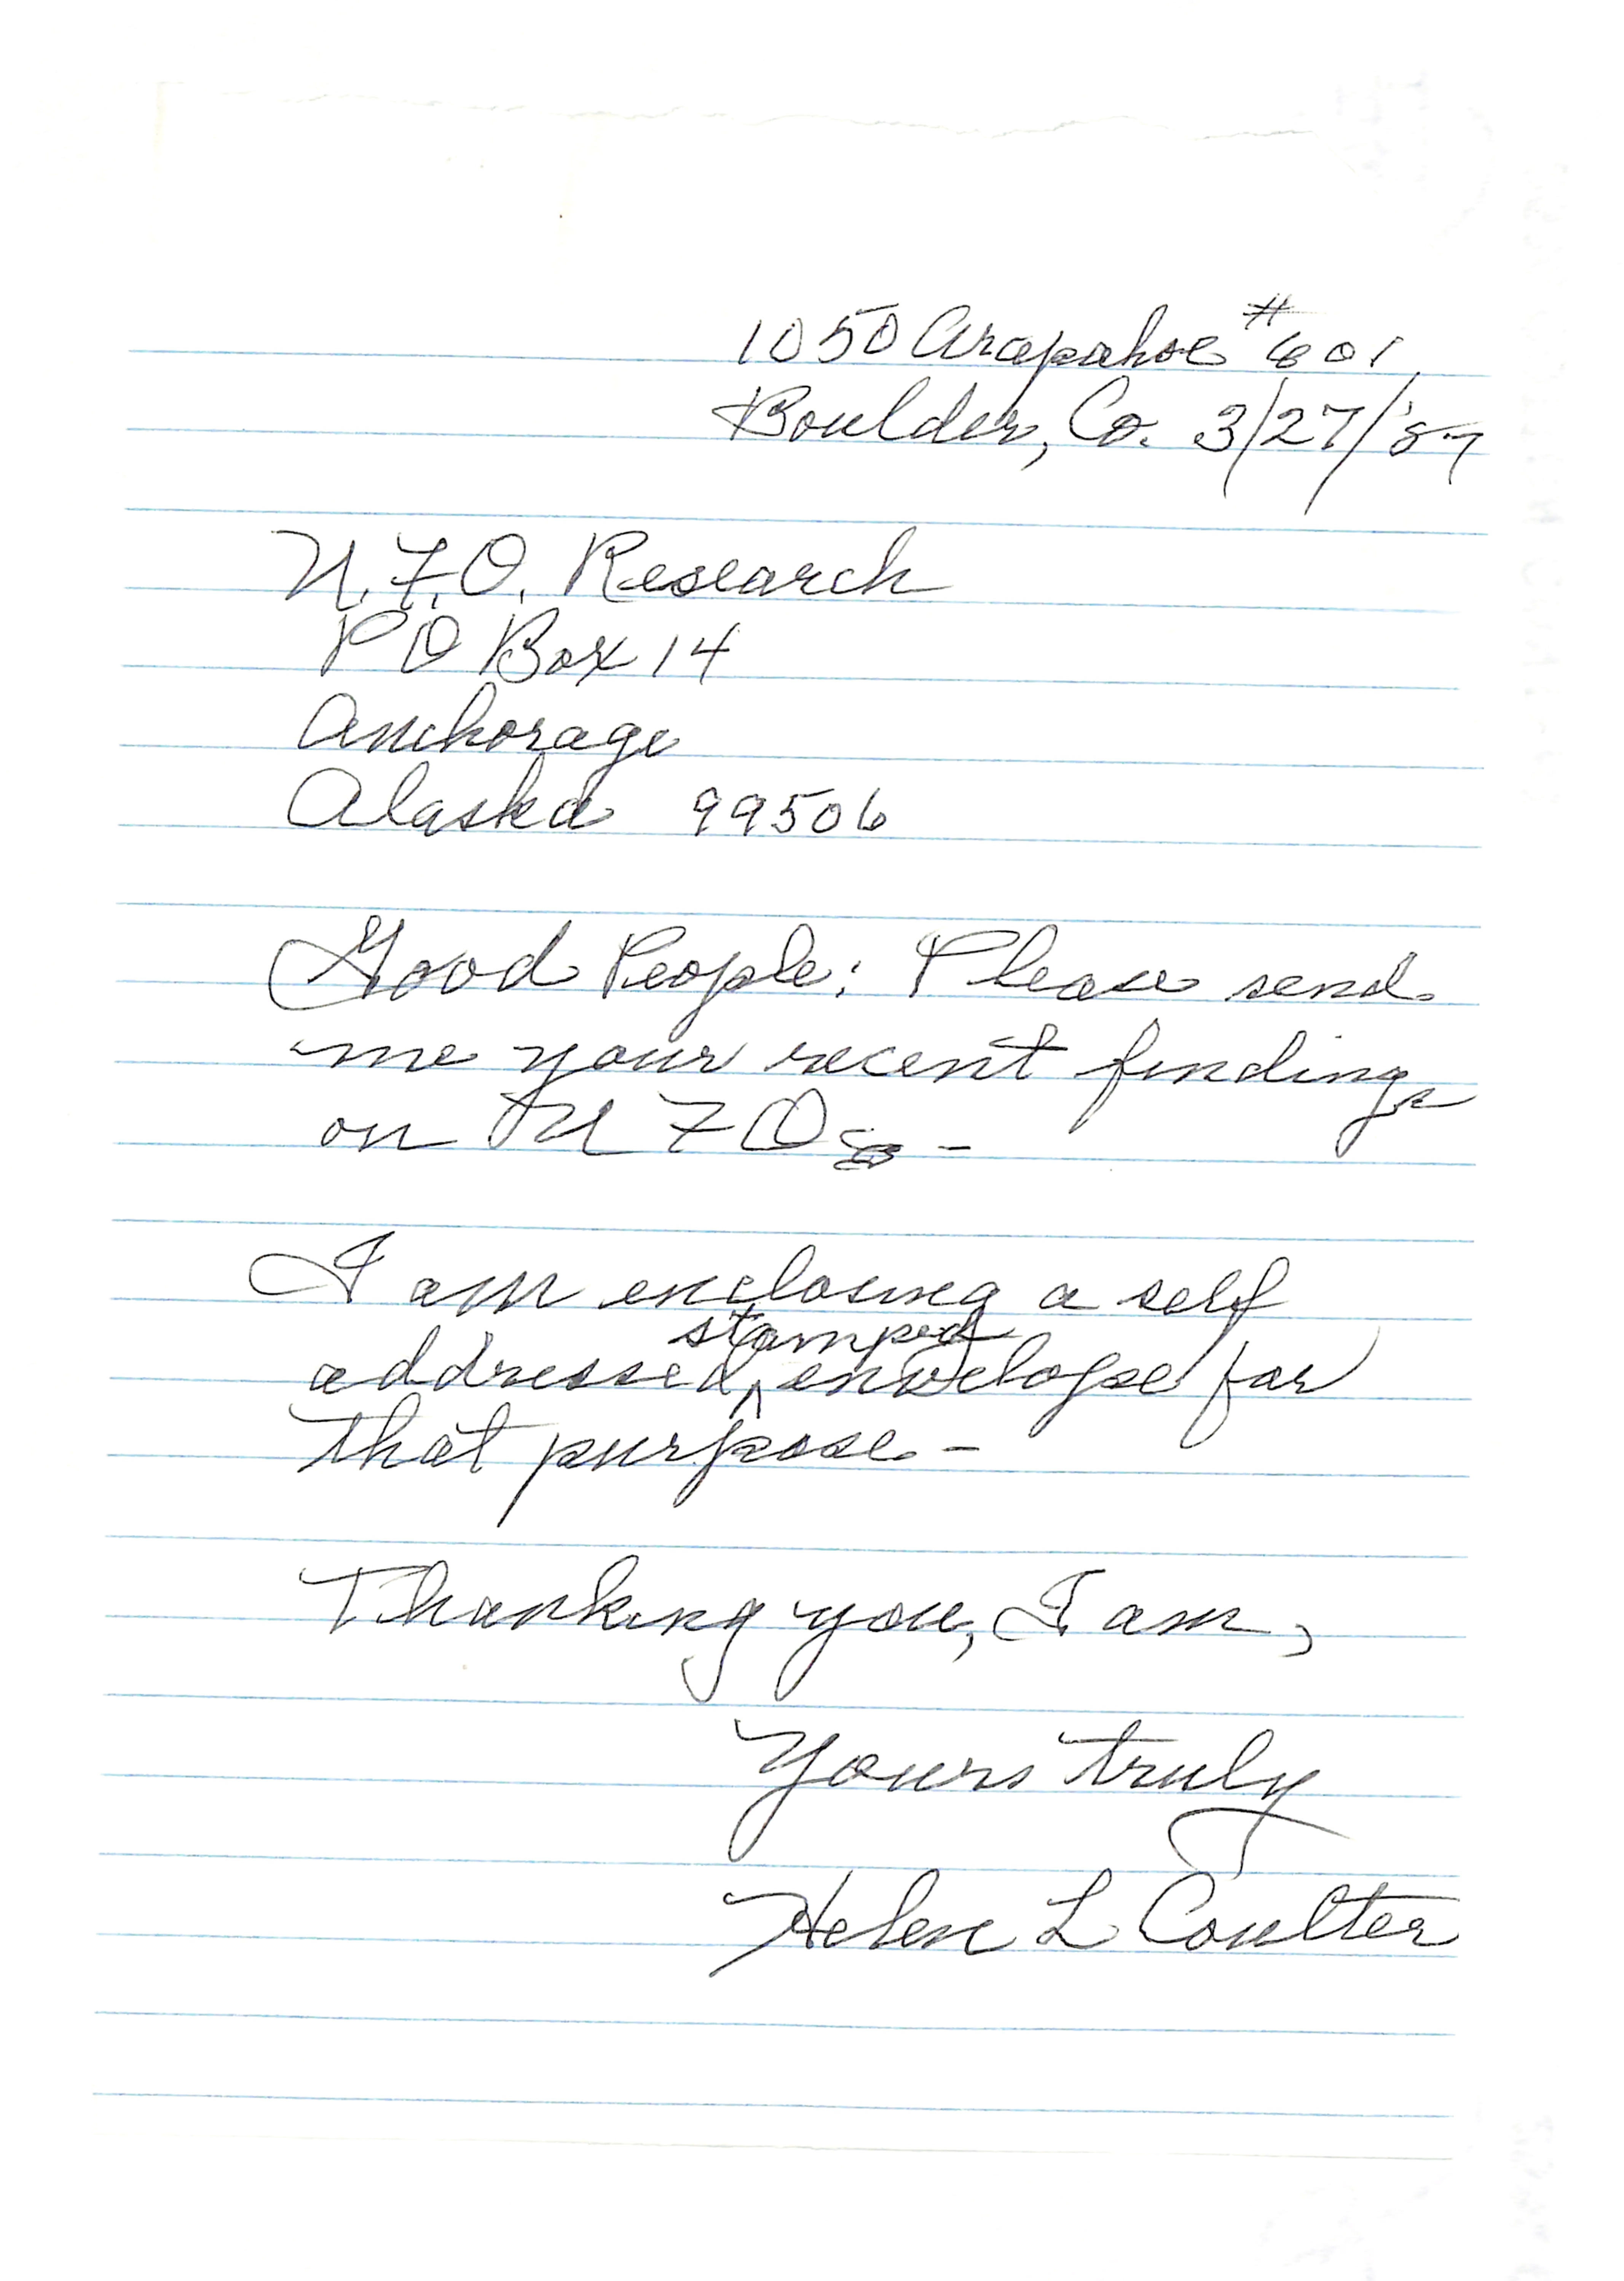 1050 Arapahoe #601
Boulder, Co. 3/27/'87
U.F.O. Research
PO Box 14
Anchorage
Alaska 99506
Good People: Please send
me your recent findings
on UFOs -
I am enclosing a self
stamped
addressed ^ envelope for
that purpose -
Thanking you, I am,
Yours truly
Helen L Coulter